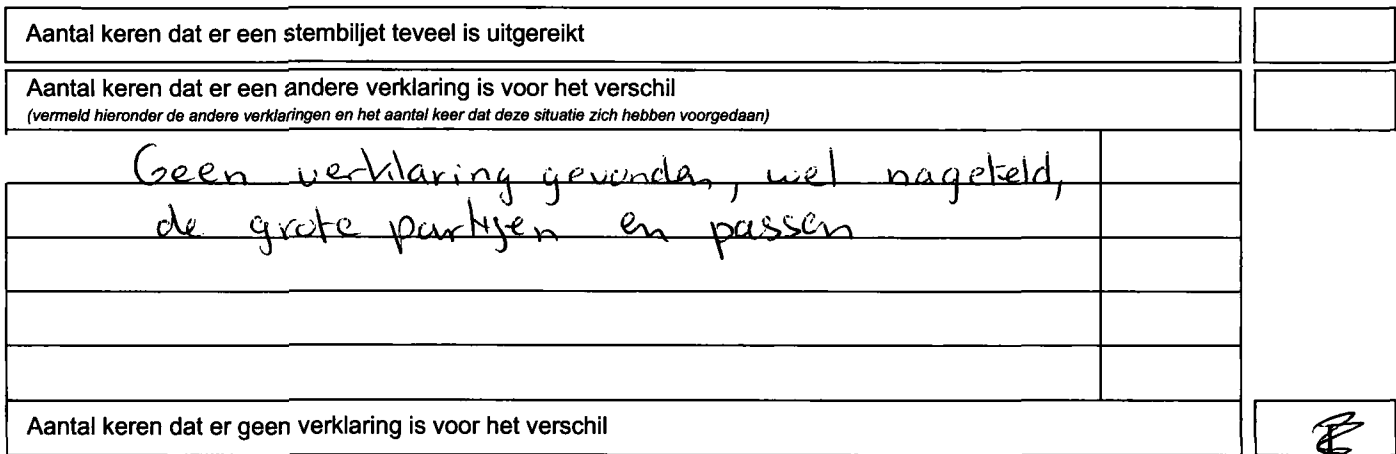 Aantal keren dat er een stembiljet teveel is uitgereikt
Aantal keren dat er een andere verklaring is voor het verschil
(vermeld hieronder de andere verklaringen en het aantal keer dat deze situatie zich hebben voorgedaan)
Geen verklaring gevonden, wel nageteld,
de grote partijen en passen
Aantal keren dat er geen verklaring is voor het verschil